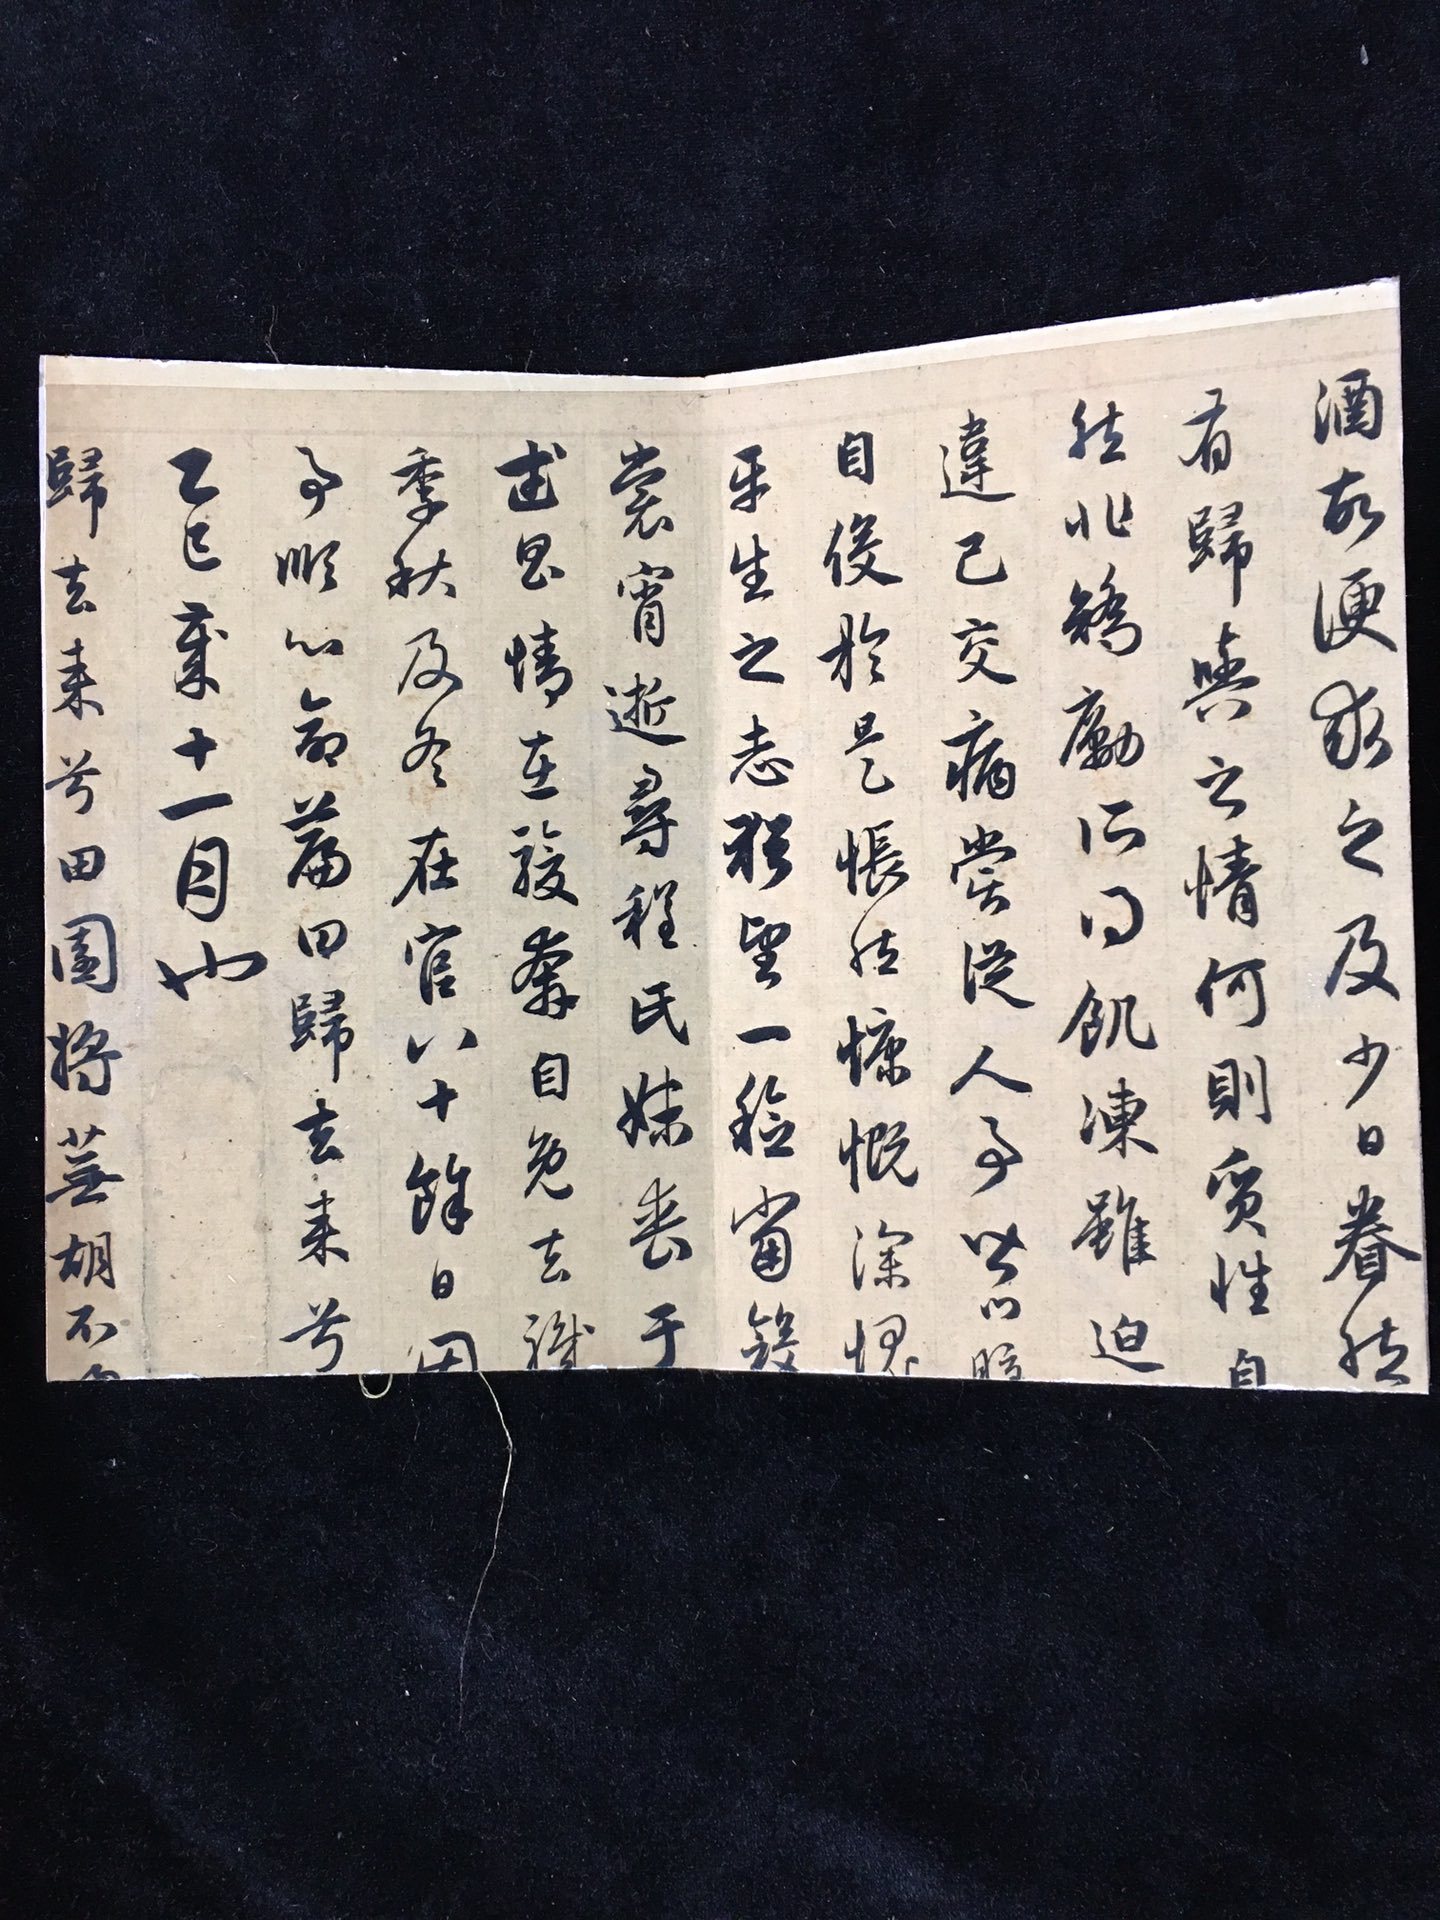 酒故便求之及少日眷然
有歸與之情何則質性自
然非矯勵所得飢凍雖迫
違己交病嘗從人事皆口腹
自役於是悵然慷慨深愧
平生之志猶望一稔當斂
裳宵逝尋程氏妹喪于
武昌情在駿奔自免去職
季秋及冬在官八十餘日因
事順心命篇曰歸去来兮
乙巳歲十一月也
歸去来兮田園將蕪胡不